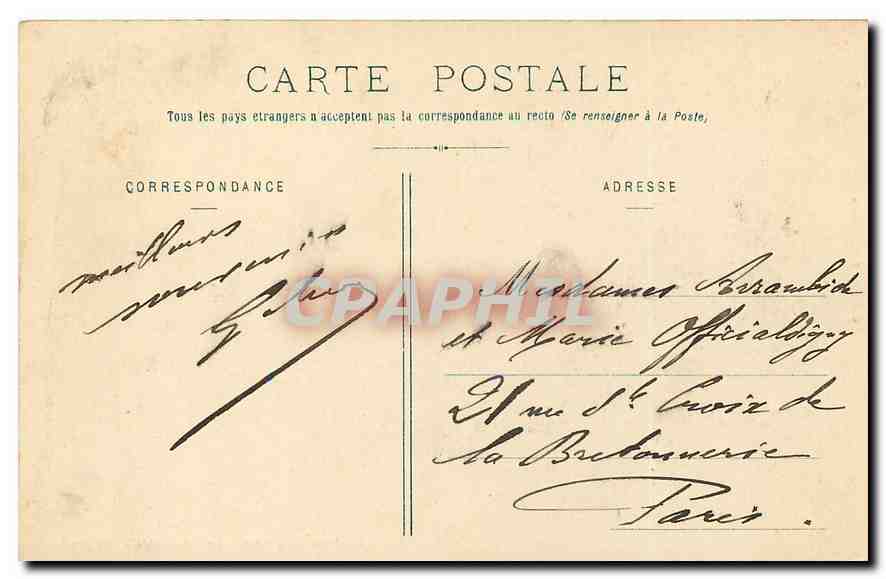 CARTE POSTALE
Tous les pays etrangers n'acceptent pas la correspondance au recto (Se renseigner à la Poste)
CORRESPONDANCE
ADRESSE
meilleurs
souvenirs
CPAPHIL
Mesdames Arrambide
et Marie
21 rue Ste Croix de
la Bretonnerie
Paris.